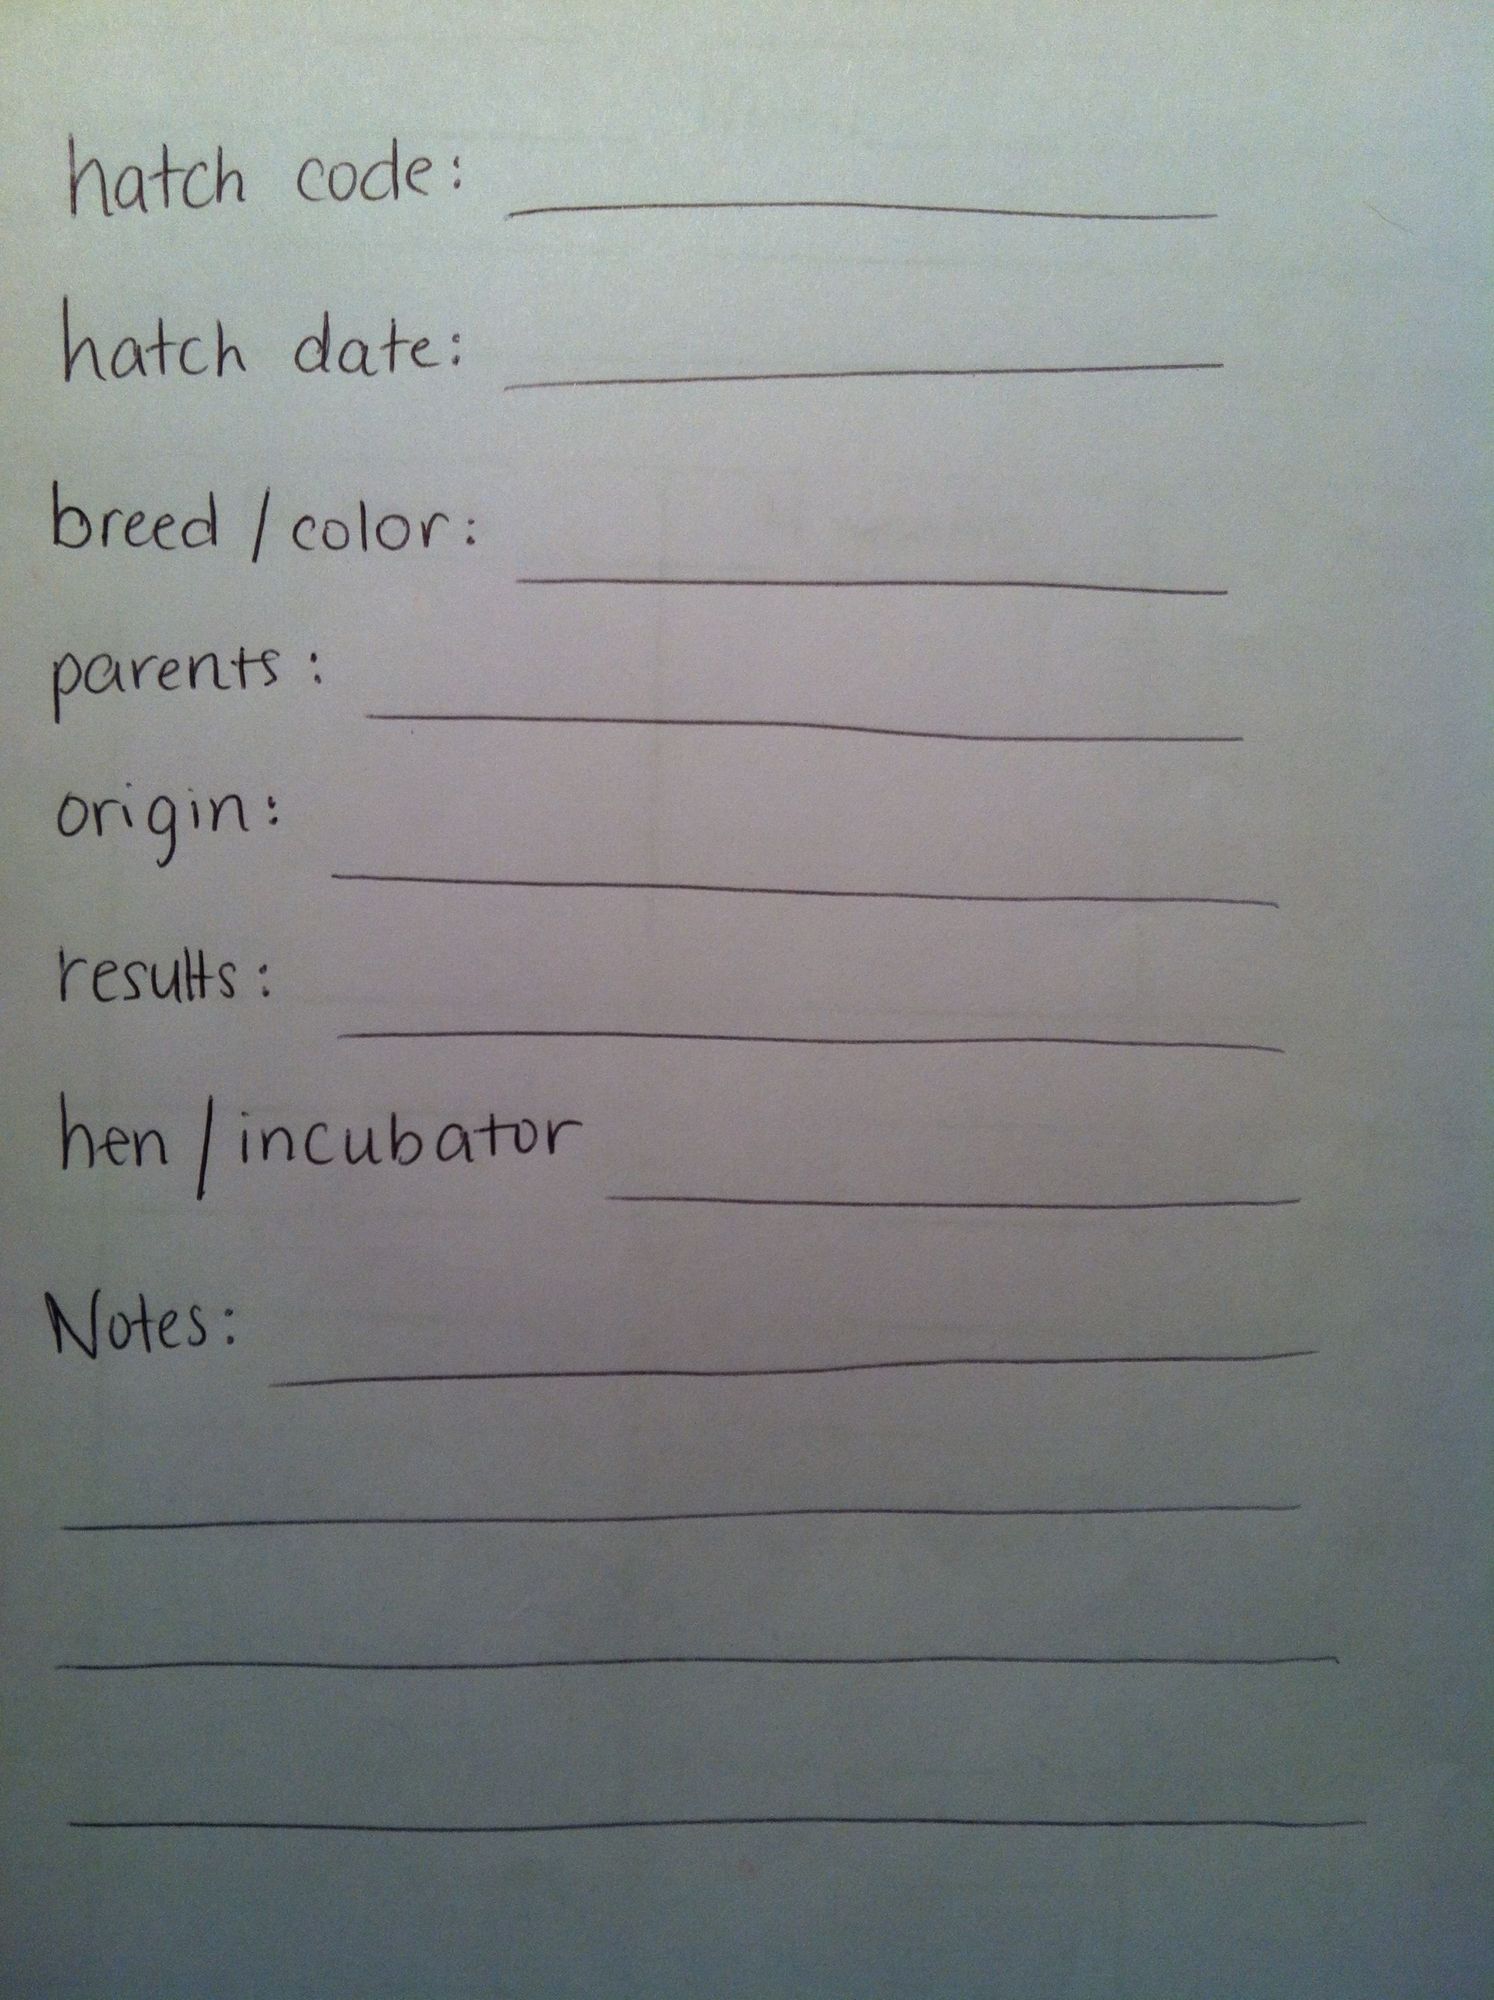 hatch code:
hatch date:
breed / color:
parents :
origin:
results:
hen / incubator
Notes: